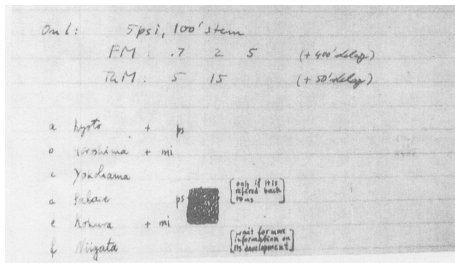 Onl: 5psi, 100' stem
FM: .7 2 5 (+ 400' delay)
5 15 (+ 50' delay)
a Kyoto + ps
o Hiroshima + mi
c Yokohama
a Palace ps [only if it is refered back to us]
e Kokura + mi
f Niigata [wait for more information on its development]